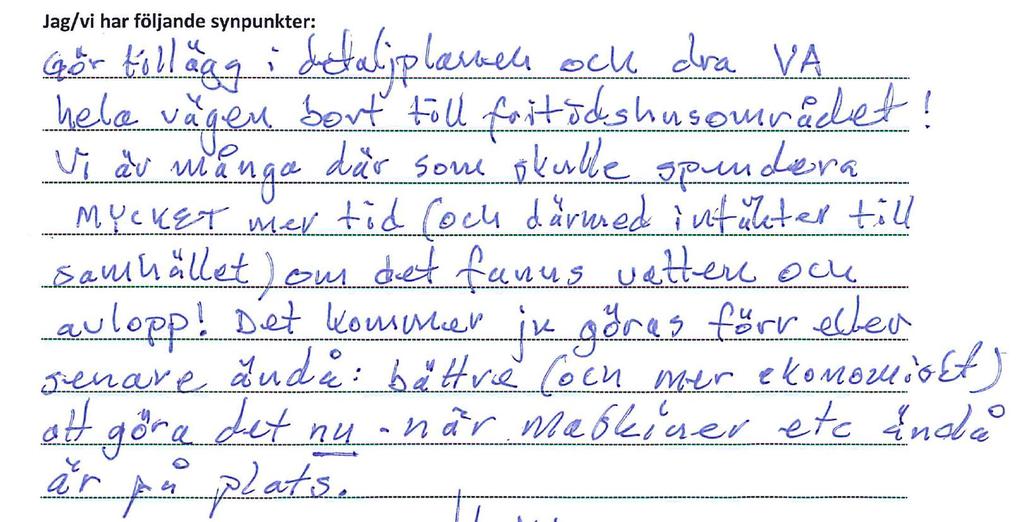 Jag/vi har följande synpunkter:
Gör tillägg i detaljplanen och dra VA
hela vägen bort till fritidshusområdet!
Vi är många där som skulle spendera
MYCKET mer tid (och därmed intäkter till
samhället) om det fanns vatten och
avlopp! Det kommer ju göras förr eller
senare ändå: bättre (och mer ekonomiskt)
att göra det nu - när maskiner etc ändå
är på plats.